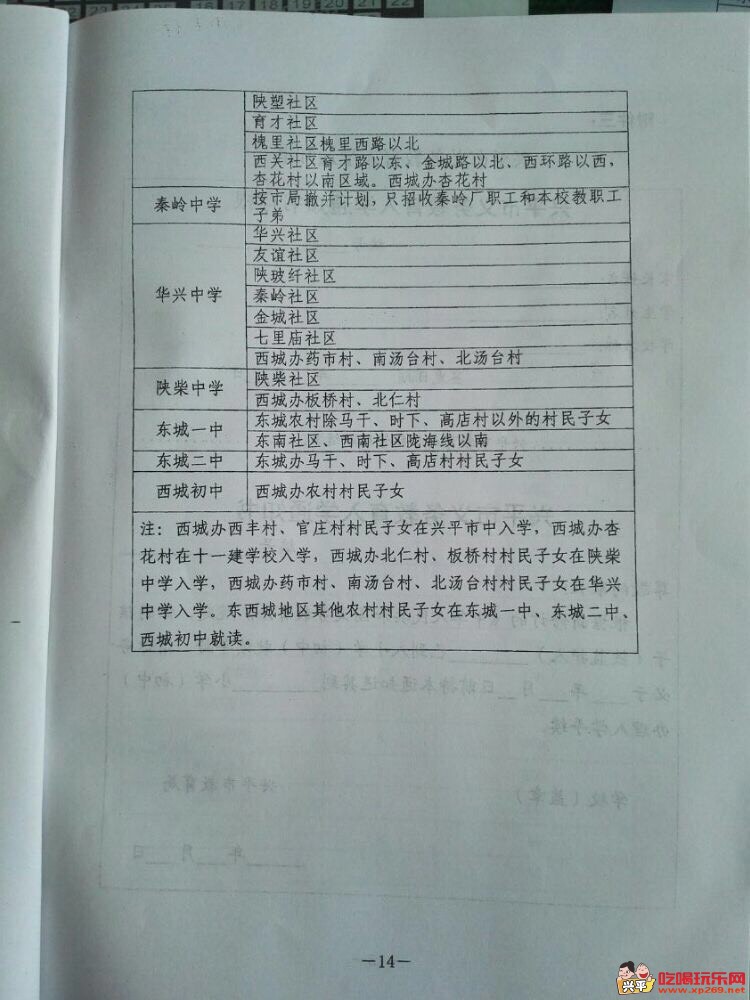 陕塑社区
育才社区
槐里社区槐里西路以北
西关社区育才路以东、金城路以北、西环路以西，
杏花村以南区域。西城办杏花村
秦岭中学
按市局撤并计划，只招收秦岭厂职工和本校教职工
子弟
华兴中学
华兴社区
友谊社区
陕玻纤社区
秦岭社区
金城社区
七里庙社区
西城办药市村、南汤台村、北汤台村
陕柴中学
陕柴社区
西城办板桥村、北仁村
东城一中
东城农村除马干、时下、高店村以外的村民子女
东南社区、西南社区陇海线以南
东城二中
东城办马干、时下、高店村村民子女
西城初中
西城办农村村民子女
注：西城办西丰村、官庄村村民子女在兴平市中入学，西城办杏
花村在十一建学校入学，西城办北仁村、板桥村村民子女在陕柴
中学入学，西城办药市村、南汤台村、北汤台村村民子女在华兴
中学入学。东西城地区其他农村村民子女在东城一中、东城二中、
西城初中就读。
—14—
兴平
吃喝玩乐网
www.xp269.net